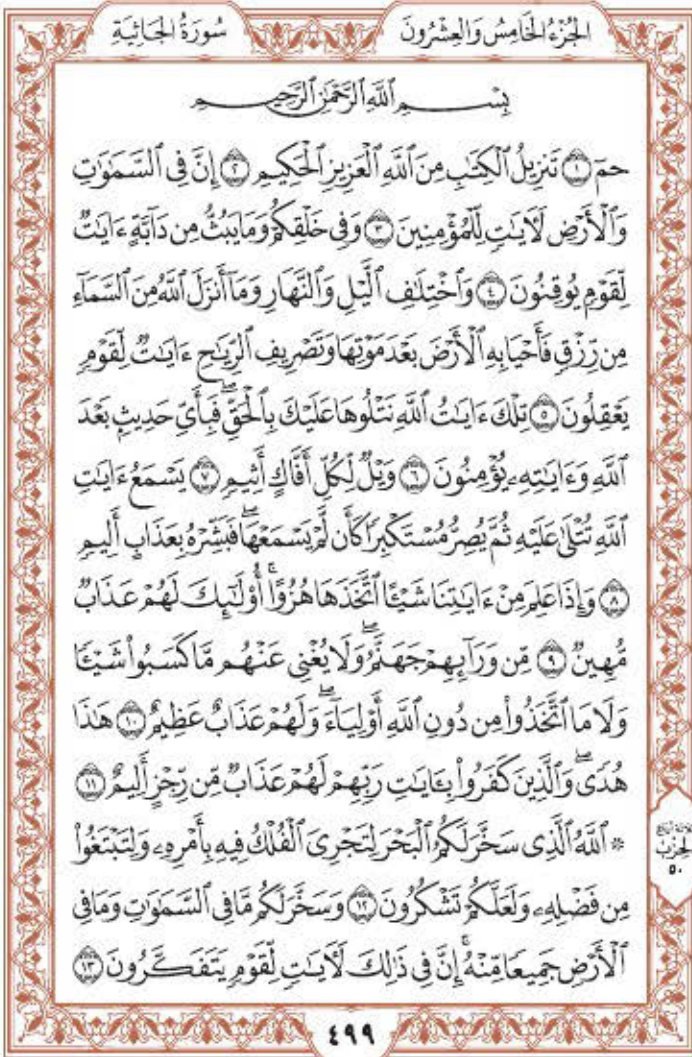 الجُزْءُ الخَامِسُ وَالعِشْرُونَ
سُورَةُ الجَاثِيَةِ
بِسْمِ ٱللَّهِ ٱلرَّحْمَٰنِ ٱلرَّحِيمِ
حمٓ ۝١ تَنزِيلُ ٱلْكِتَٰبِ مِنَ ٱللَّهِ ٱلْعَزِيزِ ٱلْحَكِيمِ ۝٢ إِنَّ فِى ٱلسَّمَٰوَٰتِ
وَٱلْأَرْضِ لَءَايَٰتٍ لِّلْمُؤْمِنِينَ ۝٣ وَفِى خَلْقِكُمْ وَمَا يَبُثُّ مِن دَآبَّةٍ ءَايَٰتٌ
لِّقَوْمٍ يُوقِنُونَ ۝٤ وَٱخْتِلَٰفِ ٱلَّيْلِ وَٱلنَّهَارِ وَمَآ أَنزَلَ ٱللَّهُ مِنَ ٱلسَّمَآءِ
مِن رِّزْقٍ فَأَحْيَا بِهِ ٱلْأَرْضَ بَعْدَ مَوْتِهَا وَتَصْرِيفِ ٱلرِّيَٰحِ ءَايَٰتٌ لِّقَوْمٍ
يَعْقِلُونَ ۝٥ تِلْكَ ءَايَٰتُ ٱللَّهِ نَتْلُوهَا عَلَيْكَ بِٱلْحَقِّ ۖ فَبِأَىِّ حَدِيثٍۭ بَعْدَ
ٱللَّهِ وَءَايَٰتِهِۦ يُؤْمِنُونَ ۝٦ وَيْلٌ لِّكُلِّ أَفَّاكٍ أَثِيمٍ ۝٧ يَسْمَعُ ءَايَٰتِ
ٱللَّهِ تُتْلَىٰ عَلَيْهِ ثُمَّ يُصِرُّ مُسْتَكْبِرًا كَأَن لَّمْ يَسْمَعْهَا ۖ فَبَشِّرْهُ بِعَذَابٍ أَلِيمٍ
۝٨ وَإِذَا عَلِمَ مِنْ ءَايَٰتِنَا شَيْـًٔا ٱتَّخَذَهَا هُزُوًا ۚ أُو۟لَٰٓئِكَ لَهُمْ عَذَابٌ
مُّهِينٌ ۝٩ مِّن وَرَآئِهِمْ جَهَنَّمُ ۖ وَلَا يُغْنِى عَنْهُم مَّا كَسَبُوا۟ شَيْـًٔا
وَلَا مَا ٱتَّخَذُوا۟ مِن دُونِ ٱللَّهِ أَوْلِيَآءَ ۖ وَلَهُمْ عَذَابٌ عَظِيمٌ ۝١٠ هَٰذَا
هُدًى ۖ وَٱلَّذِينَ كَفَرُوا۟ بِـَٔايَٰتِ رَبِّهِمْ لَهُمْ عَذَابٌ مِّن رِّجْزٍ أَلِيمٌ ۝١١
۞ ٱللَّهُ ٱلَّذِى سَخَّرَ لَكُمُ ٱلْبَحْرَ لِتَجْرِىَ ٱلْفُلْكُ فِيهِ بِأَمْرِهِۦ وَلِتَبْتَغُوا۟
مِن فَضْلِهِۦ وَلَعَلَّكُمْ تَشْكُرُونَ ۝١٢ وَسَخَّرَ لَكُم مَّا فِى ٱلسَّمَٰوَٰتِ وَمَا فِى
ٱلْأَرْضِ جَمِيعًا مِّنْهُ ۚ إِنَّ فِى ذَٰلِكَ لَءَايَٰتٍ لِّقَوْمٍ يَتَفَكَّرُونَ ۝١٣
الحِزْبُ
٥٠
٤٩٩